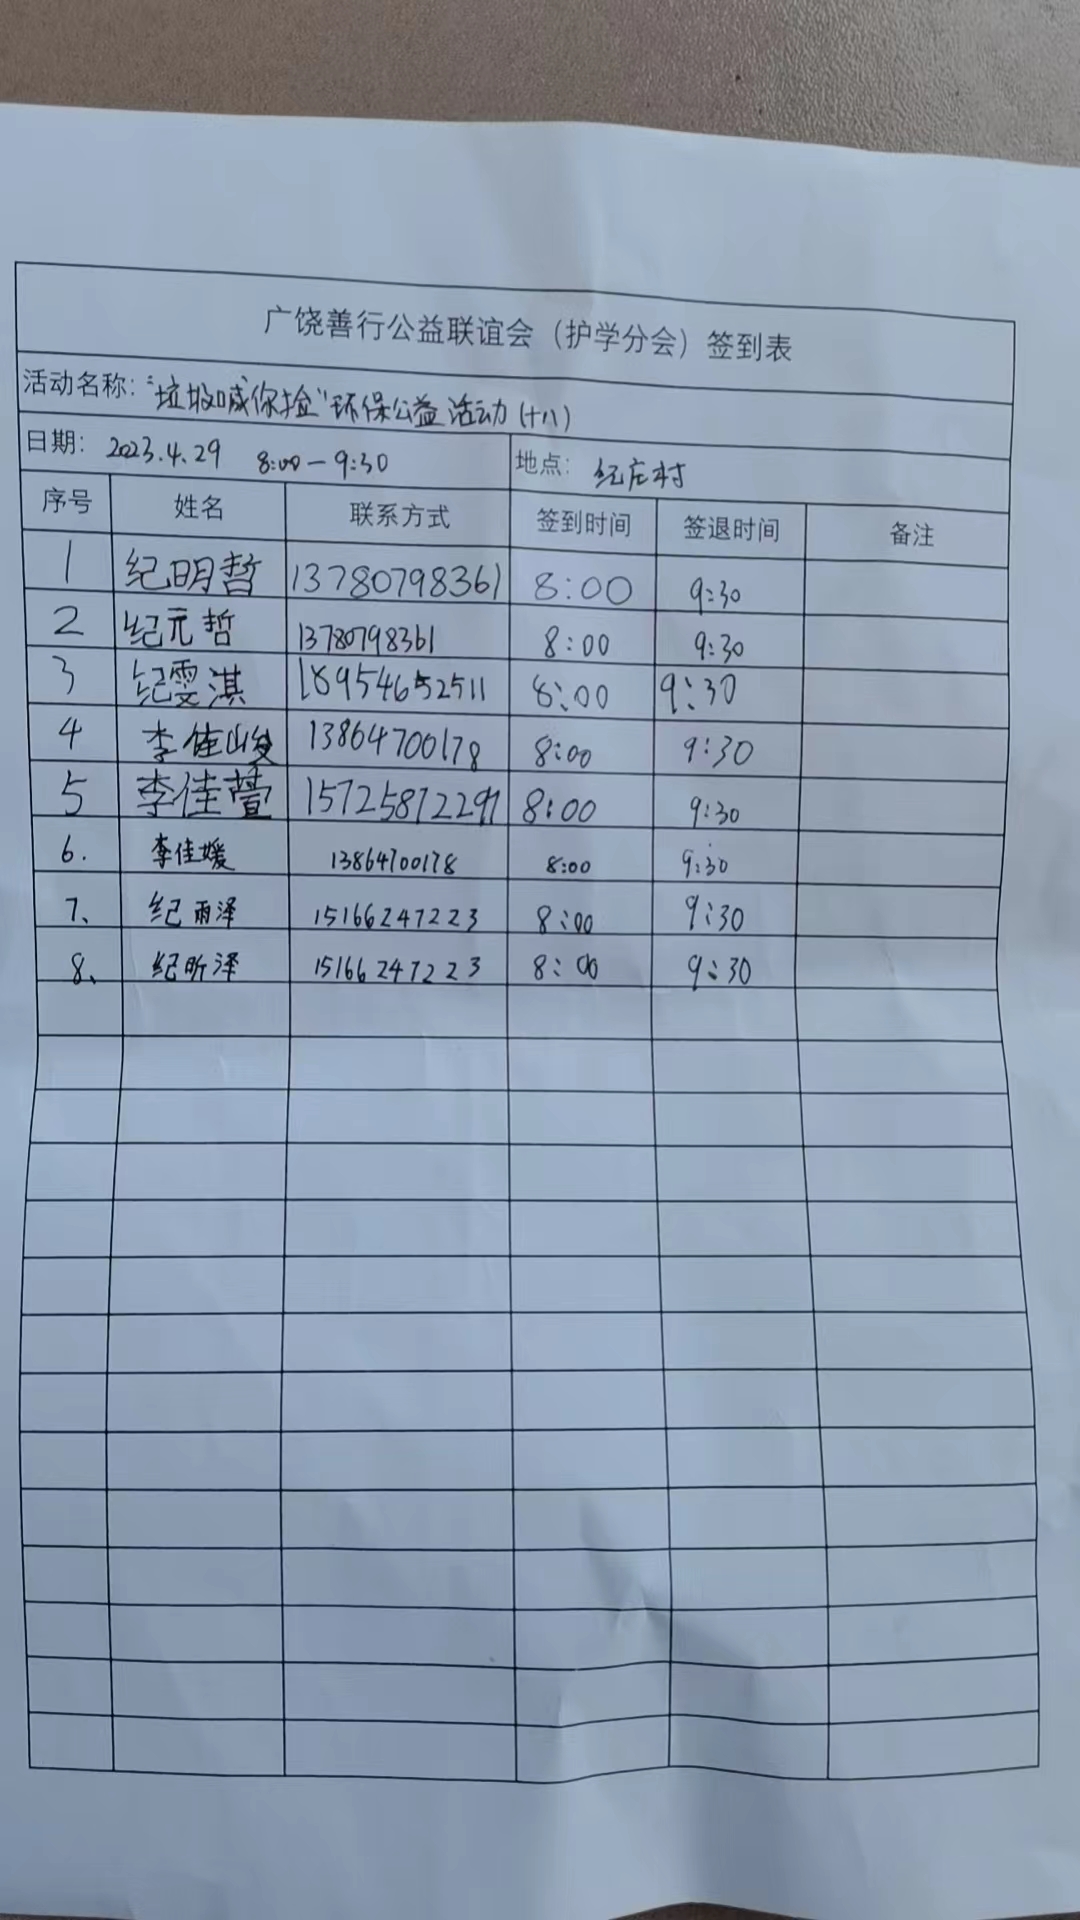 广饶善行公益联谊会（护学分会）签到表
活动名称：“垃圾喊你捡”环保公益活动（十八）
日期：2023.4.29 8:00—9:30 地点：纪庄村
序号 姓名 联系方式 签到时间 签退时间 备注
1 纪明哲 13780798361 8:00 9:30
2 纪元哲 13780798361 8:00 9:30
3 纪雯淇 18954652511 8:00 9:30
4 李佳峻 13864700178 8:00 9:30
5 李佳萱 15725872291 8:00 9:30
6. 李佳媛 13864700178 8:00 9:30
7、 纪雨泽 15166247223 8:00 9:30
8、 纪昕泽 15166247223 8:00 9:30